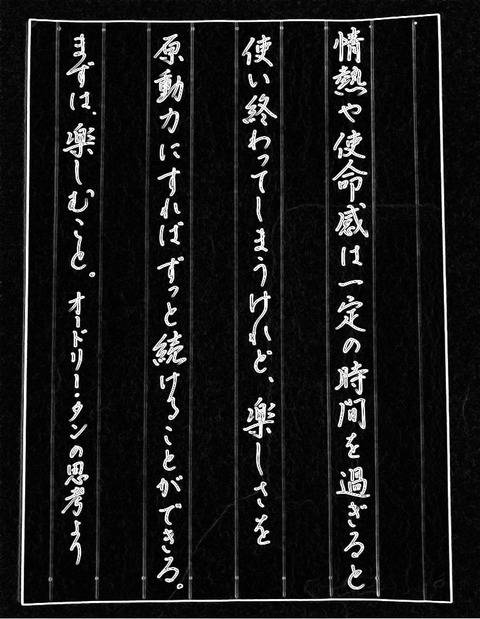 情熱や使命感は一定の時間を過ぎると
使い終わってしまうけれど、楽しさを
原動力にすればずっと続けることができる。
まずは、楽しむこと。オードリー・タンの思考より